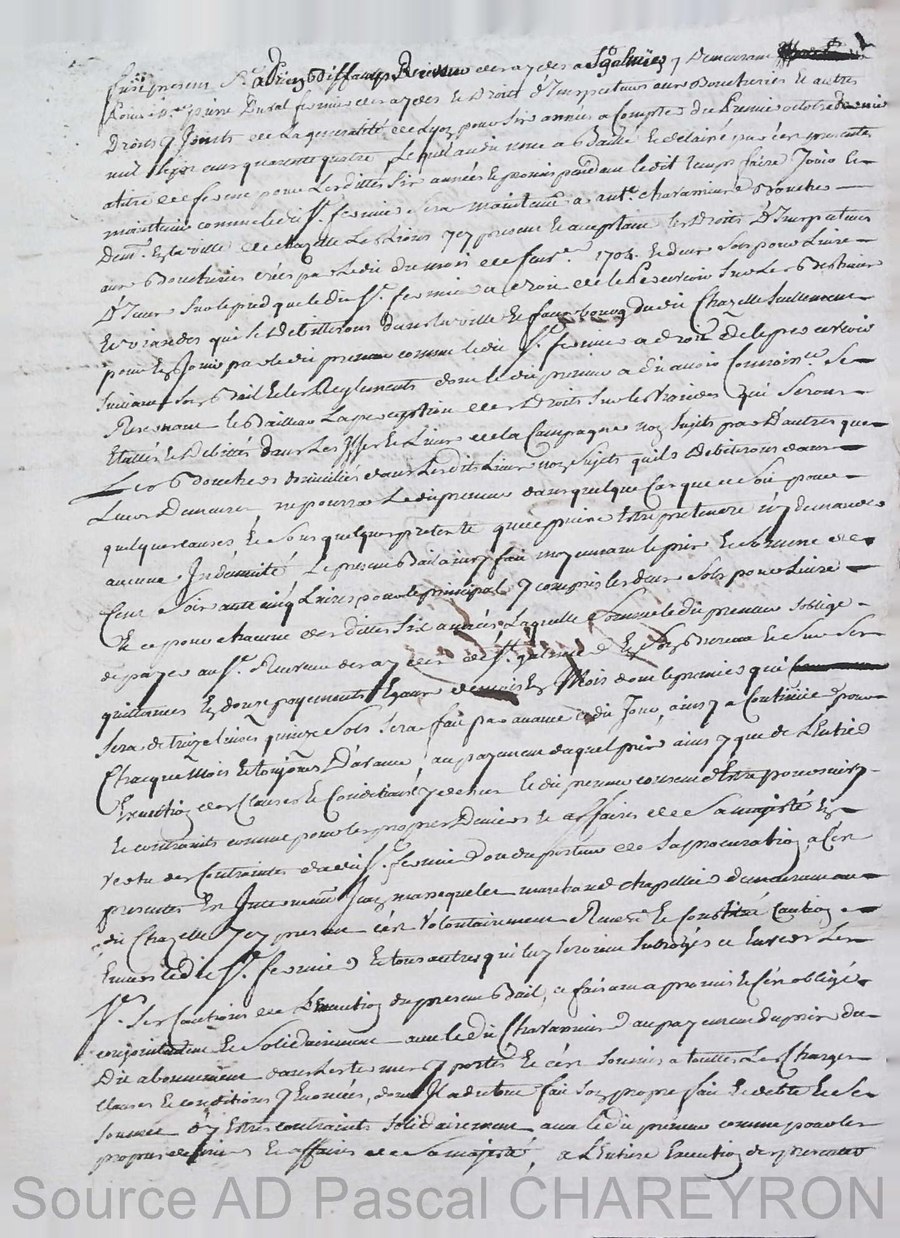 fut present Sr. adrien Diffamp Receveur des aydes a St galmier y Demeurant
Pour Sr. pierre Duval fermier des aydes et Droits D'Inspecteurs aux Boucheries et autres
Droits y Joints de La generalité de Lyon pour six années a Compter du Premier octobre dernier
mil sept cens quarante quatre Lequel audit nom a Baillé et delaissé par ces presentes
a titre de ferme pour Lesdittes six années et promis pendant ledit temps faire Jouir et
maintenir comme ledit Sr. fermier sera maintenu a ant. charamier Boucher
Demt. En la ville de chazelle Les Lions y present et acceptant les Droits D'Inspecteurs
aux Boucheries créés par Ledit du mois de fevr. 1704. et deux sols pour Livre
D'Iceux sur le pied que ledit Sr. fermier a droit de le Percevoir sur Les Bestiaux
et viandes qui se Debitteront dans la ville et fauxbourg dudit Chazelle seullement
pour En Jouir par ledit preneur comme ledit Sr. fermier a droit de le percevoir
suivant son Bail et les Reglements dont ledit preneur a dit avoir Connoissce. se
Reservant le Bailleur La perception des Droits sur les viandes qui seront
Etallés et Debités dans Les et Lieux de la Campagne non sujets par D'autres que
Les Bouchers domiciliés dans Lesdits Lieux non sujets qu'ils Debiteront dans
Leurs Demeures ne pourra Ledit preneur dans quelque Cas que ce soit pour
quelques causes et sous quelque pretexte que ce puisse Estre pretendre ny demander
aucune Indemnité Le present Bail ainsy fait moyennant le prix et somme de
Cent soixante cinq Livres pour le principal y compris les deux sols pour Livre
Et ce pour chacune desdittes six années Laquelle somme ledit preneur s'oblige
de payer au Sr. Receveur des aydes de St. galmier En son Bureau et sur ses
quittances En douze payements Egaux de mois En Mois dont le premier qui
sera de treize livres quinze sols sera fait par avance ce dit Jour, ainsy a Continuer pour
Chacque Mois et toujours D'avance, au payement duquel prix ainsy que de L'Entiere
Execution des clauses et Conditions y dessus le dit preneur consent d'Estre poursuivy
et contraint comme pour les propres Deniers et affaires de sa majesté En
vertu des Contraintes dudit Sr. fermier ou du porteur de sa procuration a Ces
presentes Est Intervenu Jean massequeler marchand chapellier demeurant au
dit Chazelle y present s'est volontairement Rendu et Constitué Caution
Envers ledit Sr. fermier et tous autres qui luy seroient subrogés et Envers Les
Srs. ses Cautions de L'Execution du present Bail, ce faisant a promis et s'est obligé
conjointement et solidairement avec ledit Charamier au payement du prix du
Dit abonnement dans les termes y portés et s'est soumis a touttes Les Charges
clauses et conditions y Enoncées, dont Il a de tout fait son propre fait et dette et se
soumet D'y Estre contraint solidairement avec ledit preneur comme pour les
propres deniers et affaires de sa majesté, a L'Entiere Execution des presentes
Source AD Pascal CHAREYRON